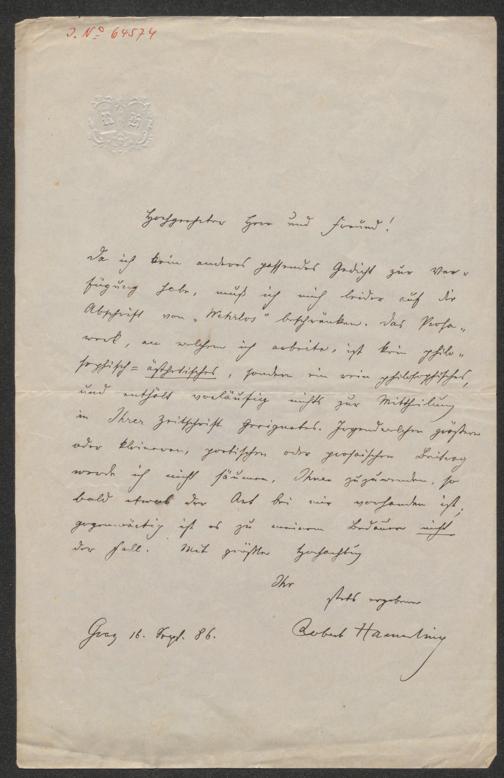 J. No 64574
Hochgeehrter Herr und Freund!
Da ich kein anderes passendes Gedicht zur Ver=
fügung habe, muß ich mich leider auf die
Abschrift von „Wehrlos" beschränken. Das Prosa=
werk, an welchem ich arbeite, ist kein philo=
sophisch=ästhetisches, sondern ein rein philosophisches,
und enthält vorläufig nichts zur Mittheilung
in Ihrer Zeitschrift Geeignetes. Irgendwelchen größeren
oder kleineren, poetischen oder prosaischen Beitrag
werde ich nicht säumen, Ihnen zuzuwenden, so
bald etwas der Art bei mir vorhanden ist;
gegenwärtig ist es zu meinem Bedauern nicht
der Fall. Mit größter Hochachtung
Ihr
stets ergebener
Graz 16. Sept. 86.
Robert Hamerling